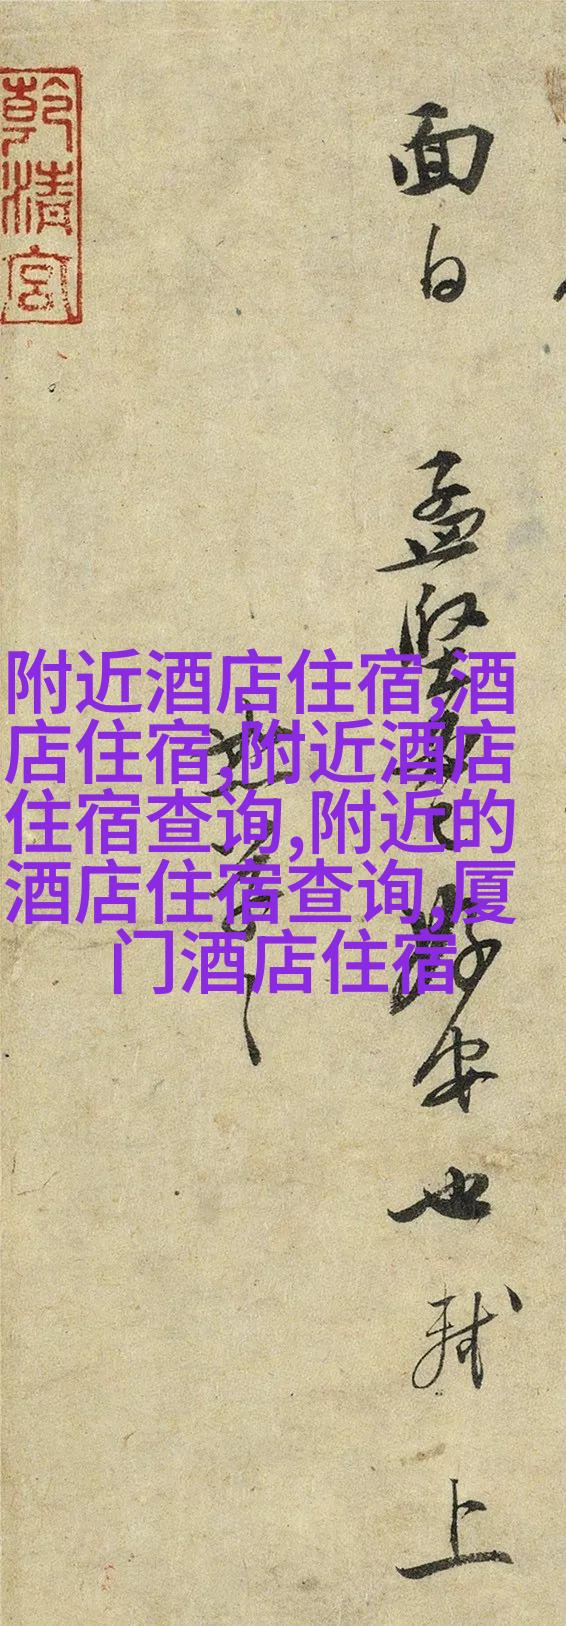 面白 孟坚 安也轼上
乾清宫
附近酒店住宿,酒
店住宿,附近酒店
住宿查询,附近的
酒店住宿查询,厦
门酒店住宿